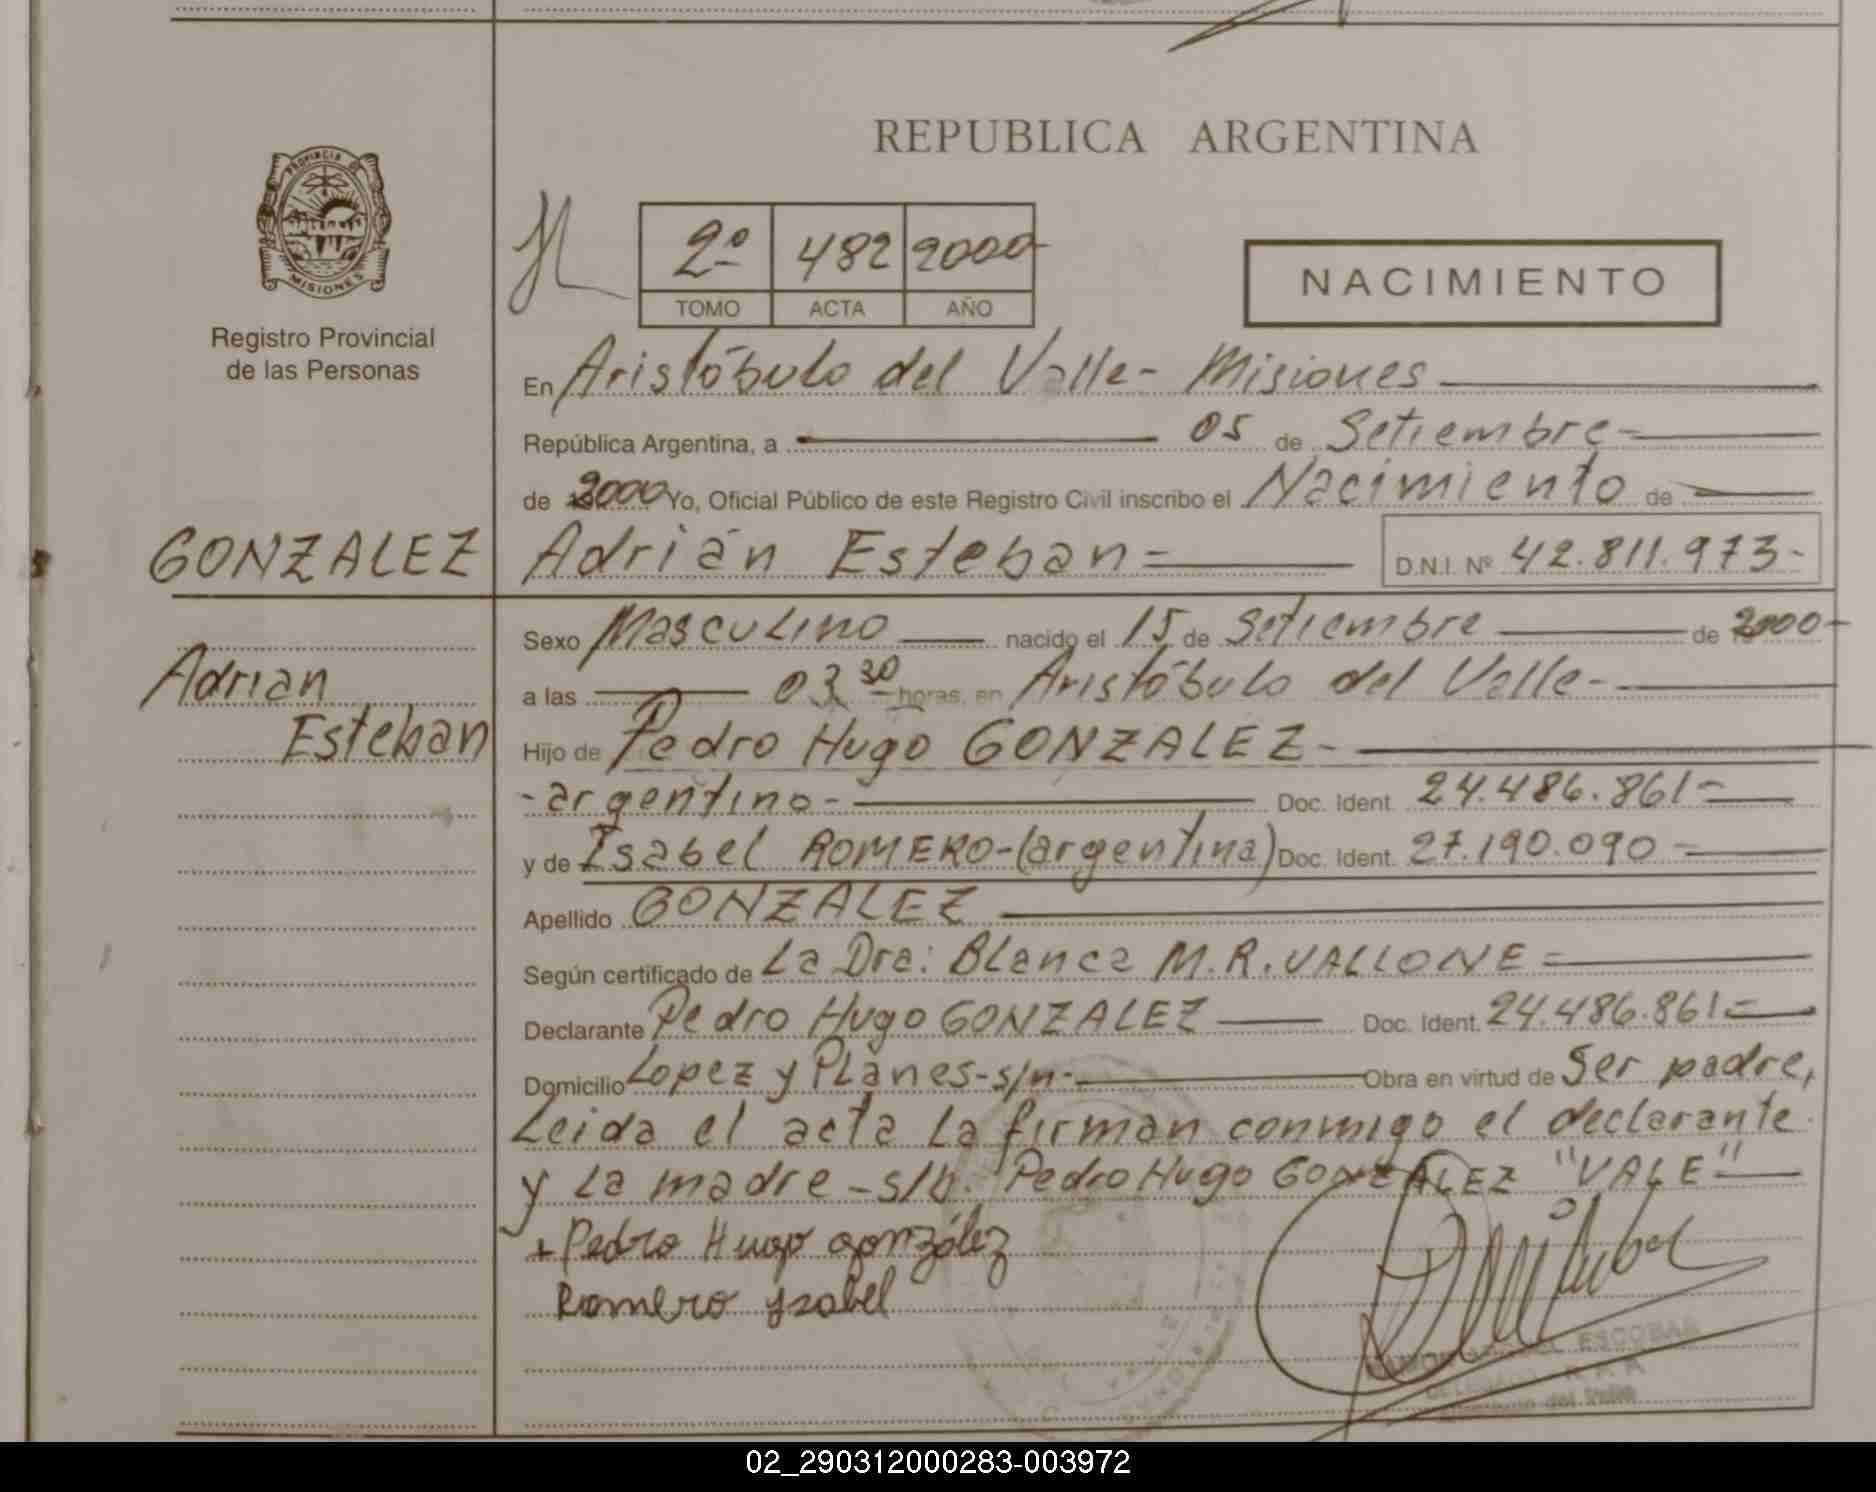 REPUBLICA ARGENTINA
PROVINCIA DE
MISIONES
Registro Provincial
de las Personas
2º 482 2000-
TOMO ACTA AÑO
NACIMIENTO
En Aristóbulo del Valle- Misiones
República Argentina, a 05 de Setiembre-
de 2000 Yo, Oficial Público de este Registro Civil inscribo el Nacimiento de
GONZALEZ Adrián Esteban= D.N.I. Nº 42.811.973-
Adrian
Esteban
Sexo Masculino nacido el 15 de Setiembre de 2000-
a las 03 30 horas, en Aristóbulo del Valle-
Hijo de Pedro Hugo GONZALEZ-
-argentino- Doc. Ident. 24.486.861-
y de Isabel ROMERO-(argentina) Doc. Ident. 27.190.090-
Apellido GONZALEZ
Según certificado de La Dra: Blanca M.R. VALLONE=
Declarante Pedro Hugo GONZALEZ Doc. Ident. 24.486.861.=
Domicilio Lopez y Planes-s/n- Obra en virtud de Ser padre,
Leida el acta la firman conmigo el declarante
y la madre-s/b. Pedro Hugo GONZALEZ "VALE"
+Pedro Hugo gonzález
Romero ysabel
ESCOBAR
del Valle
02_290312000283-003972